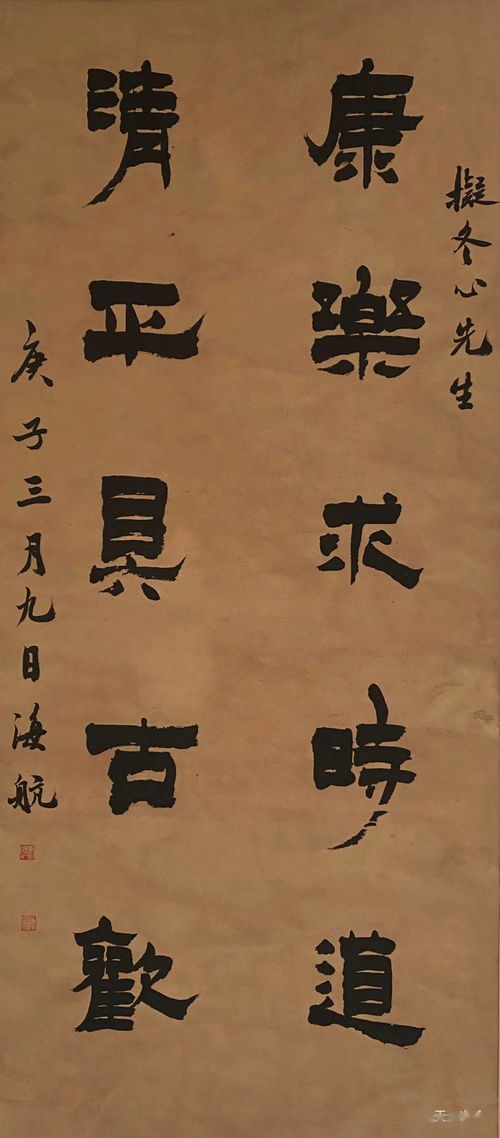 擬冬心先生
康樂求時道
清平具古歡
庚子三月九日海航